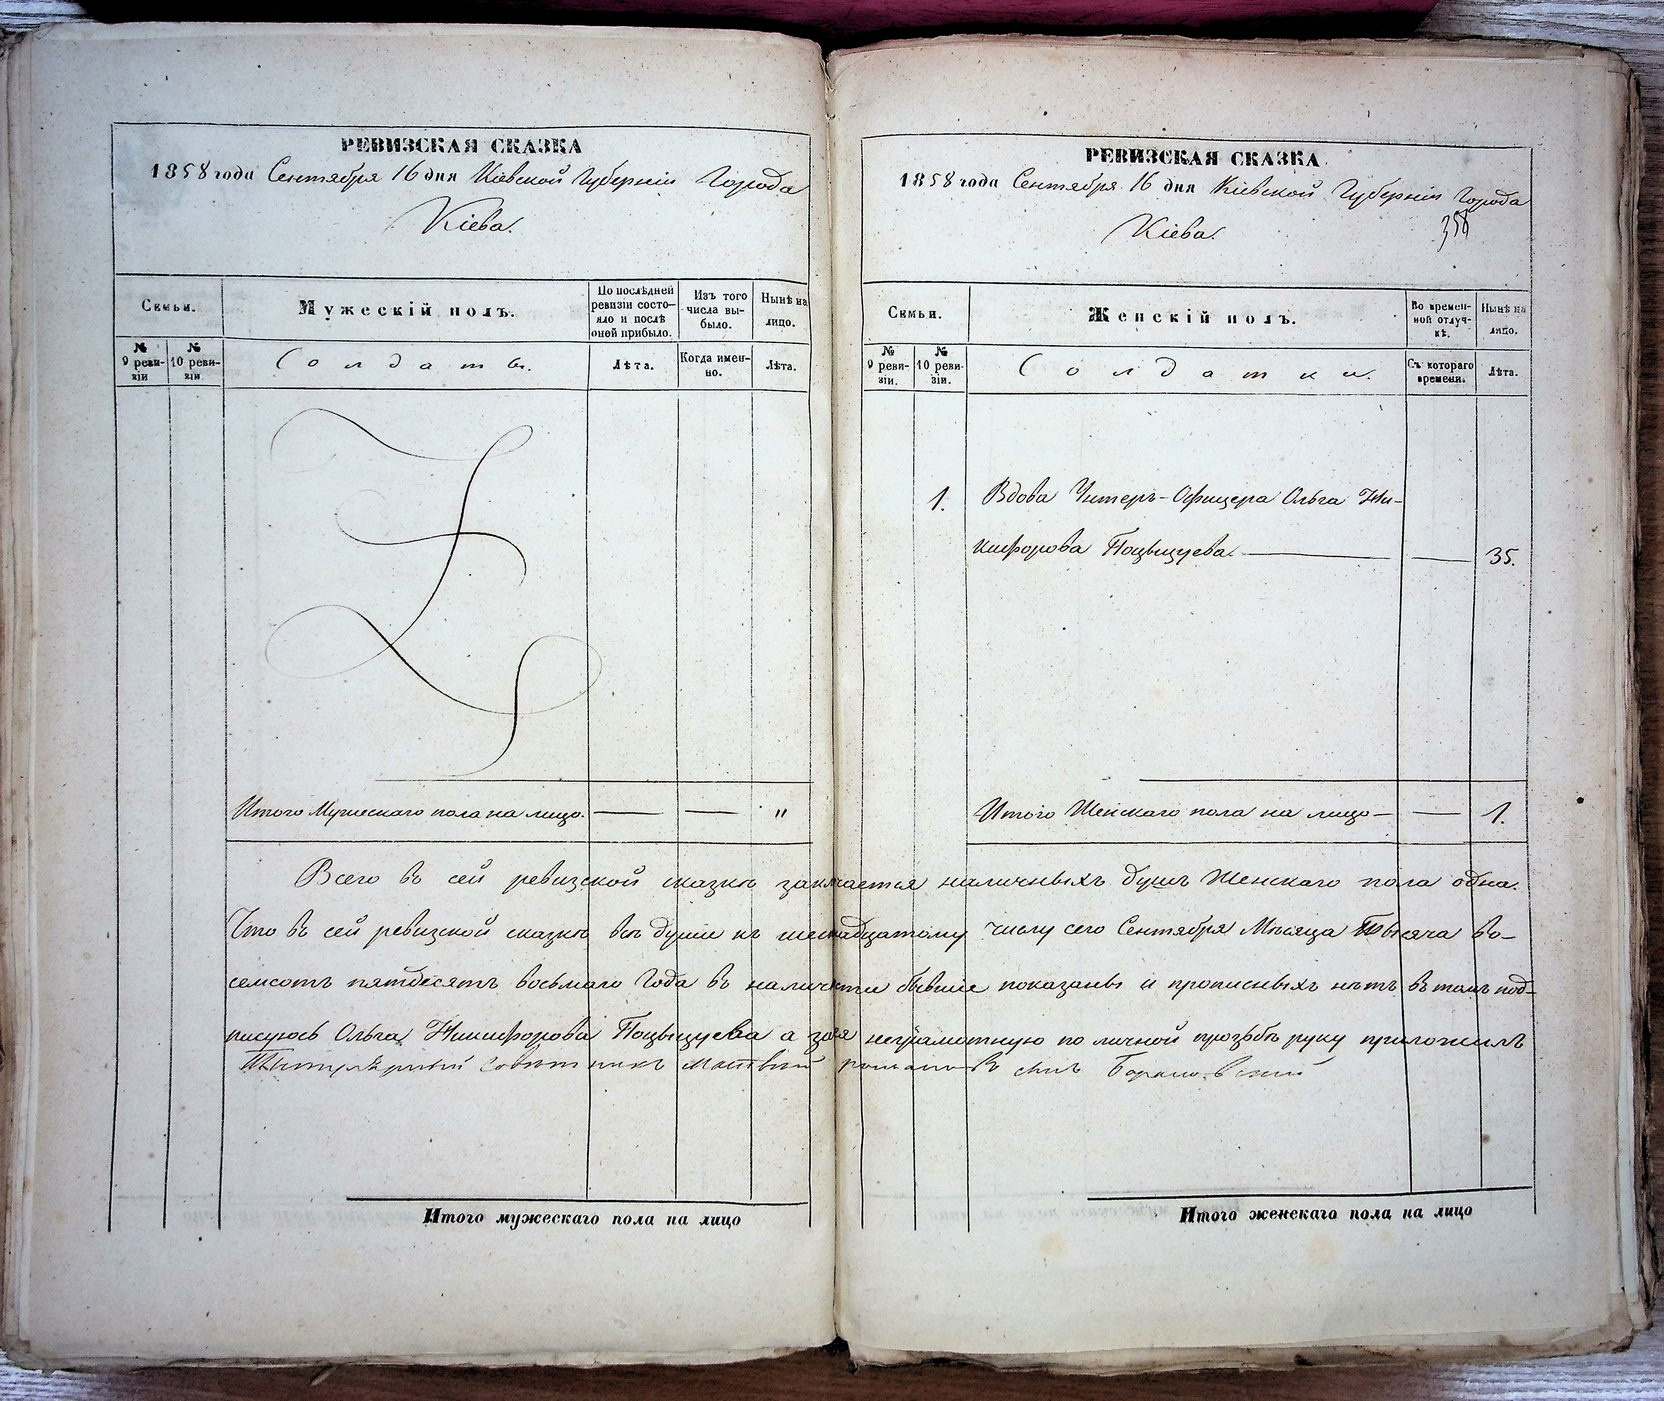 РЕВИЗСКАЯ СКАЗКА
1858 года Сентября 16 дня Кіевской Губерніи Города
Кіева.
Семьи.
Мужескій полъ.
По послѣдней ревизіи состо-
яло и послѣ
оней прибыло.
Изъ того
числа вы-
было.
Нынѣ на
лицо.
№
9 реви-
зіи
№
10 реви-
зіи.
Солдаты.
Лѣта.
Когда имен-
но.
Лѣта.
Итого Мужескаго пола на лицо. — — "
РЕВИЗСКАЯ СКАЗКА
1858 года Сентября 16 дня Кіевской Губерніи Города
Кіева.
358
Семьи.
Женскій полъ.
Во времен-
ной отлуч-
кѣ.
Нынѣ на
лицо.
№
9 реви-
зіи.
№
10 реви-
зіи.
Солдатки.
Съ котораго
времени.
Лѣта.
1. Вдова Унтеръ-Офицера Ольга Ни-
кифорова Поцѣлуева — — 35.
Итого Женскаго пола на лицо — — 1.
Всего въ сей ревизской сказкѣ заключается наличныхъ душъ Женскаго пола одна.
Что въ сей ревизской сказкѣ всѣ души къ шеснадцатому числу сего Сентября Мѣсяца Тысяча во-
семсотъ пятдесятъ восьмаго Года въ наличности бывшіе показаны и прописныхъ нѣтъ въ томъ под-
писуюсь Ольга Никифорова Поцѣлуева а за ея неграмотную по личной прозьбѣ руку приложилъ
Титулярный Совѣтникъ Матвѣй сынъ
Итого мужескаго пола на лицо
Итого женскаго пола на лицо